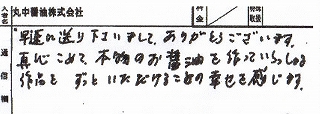 加入者名 丸中醤油株式会社 料金 特殊取扱
通信欄
早速に送り下さいまして、ありがとうございます。
真心こめて、本物のお醤油を作っていらっしゃる
作品を ずっといただけることの幸せを感じます。